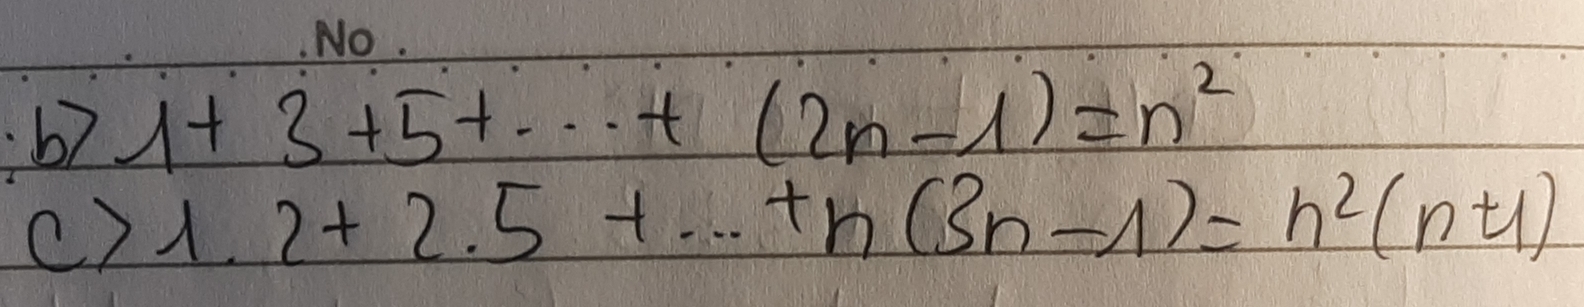 .No.
b) 1 + 3 + 5 + ... + (2n - 1) = n²
c) 1.2 + 2.5 + ... + n(3n - 1) = n²(n+1)